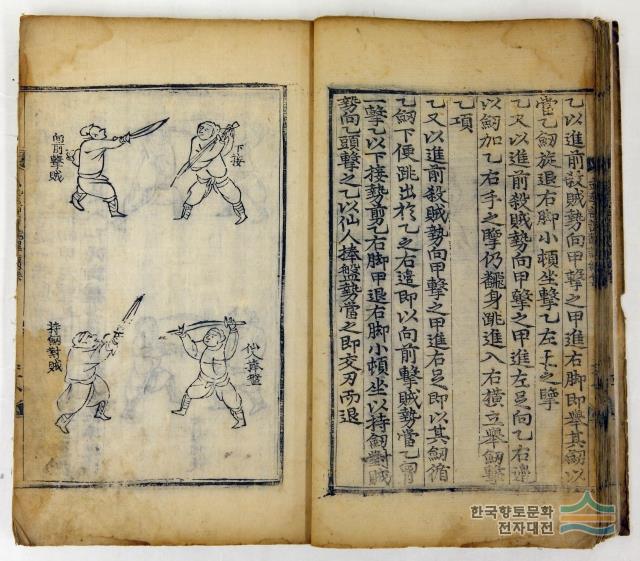 乙以進前殺賊勢向甲擊之甲進右脚即擧其劒以
當乙劒旋退右脚小頓坐擊乙左手之擘
乙又以進前殺賊勢向甲擊之甲進左足向乙右邊
以劒加乙右手之擘仍飜身跳進入右橫立擧劒擊
乙項
乙又以進前殺賊勢向甲擊之甲進右足即以其劒循
乙劒下便跳出於乙之右邊即以向前擊賊勢當乙胷
一擊乙以下接勢剪乙右脚甲退右脚小頓坐以持劒對賊
勢向乙頭擊之乙以仙人捧盤勢當之即交刃而退
下接
向前擊賊
仙人捧盤
持劒對賊
한국향토문화
전자대전